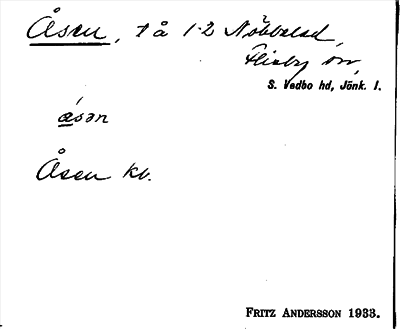 Åsen, t å 1-2 Nobbeled,
Flisby sn,
S. Vedbo hd, Jönk. l.
ǻsən
Åsen kb.
FRITZ ANDERSSON 1933.